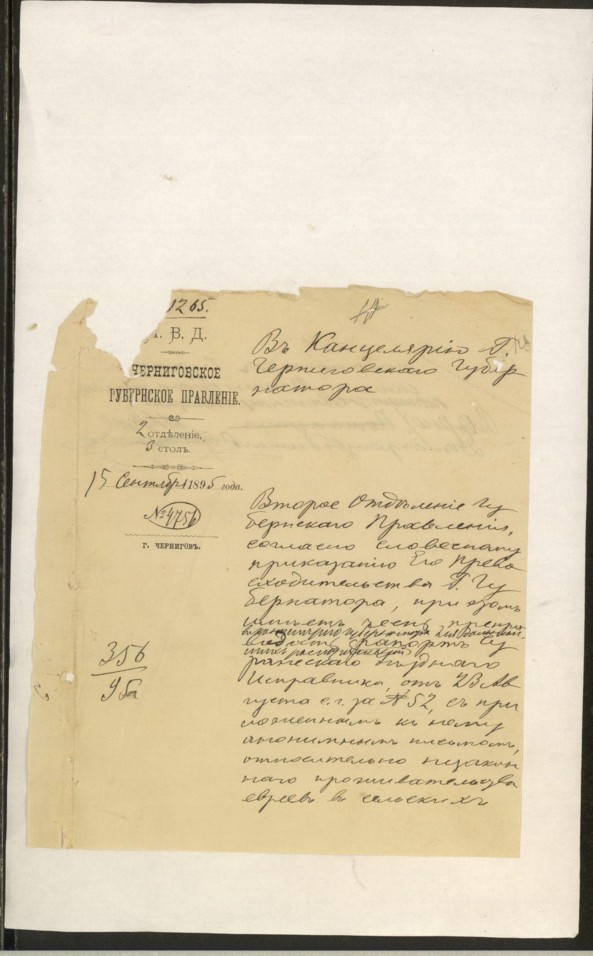 1265.
В. Д.
ЧЕРНИГОВСКОЕ
ГУБЕРНСКОЕ ПРАВЛЕНІЕ.
2 отдѣленіе,
3 столъ.
15 Сентября 1895 года.
№ 4756
Г. ЧЕРНИГОВЪ.
356
95 г
Въ Канцелярію Г.
Черниговскаго Губер
натора
Второе Отдѣленіе Гу
бернскаго Правленія,
согласно словесному
приказанію Его Прево
сходительства Г. Гу
бернатора, при этомъ
имѣетъ честь препро
канцелярію Губернатора для
водить рапортъ Су
ражскаго Уѣзднаго
Исправника, отъ 23 Ав
густа с. г. за № 52, съ при
ложеннымъ къ нему
анонимнымъ письмомъ,
относительно незакон
наго проживательства
евреевъ въ сельскихъ